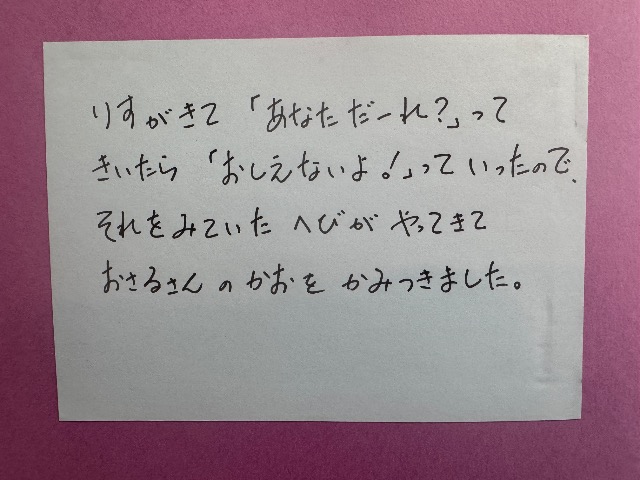 りすがきて「あなただーれ?」って
きいたら「おしえないよ!」っていったので、
それをみていたへびがやってきて
おさるさんのかおをかみつきました。